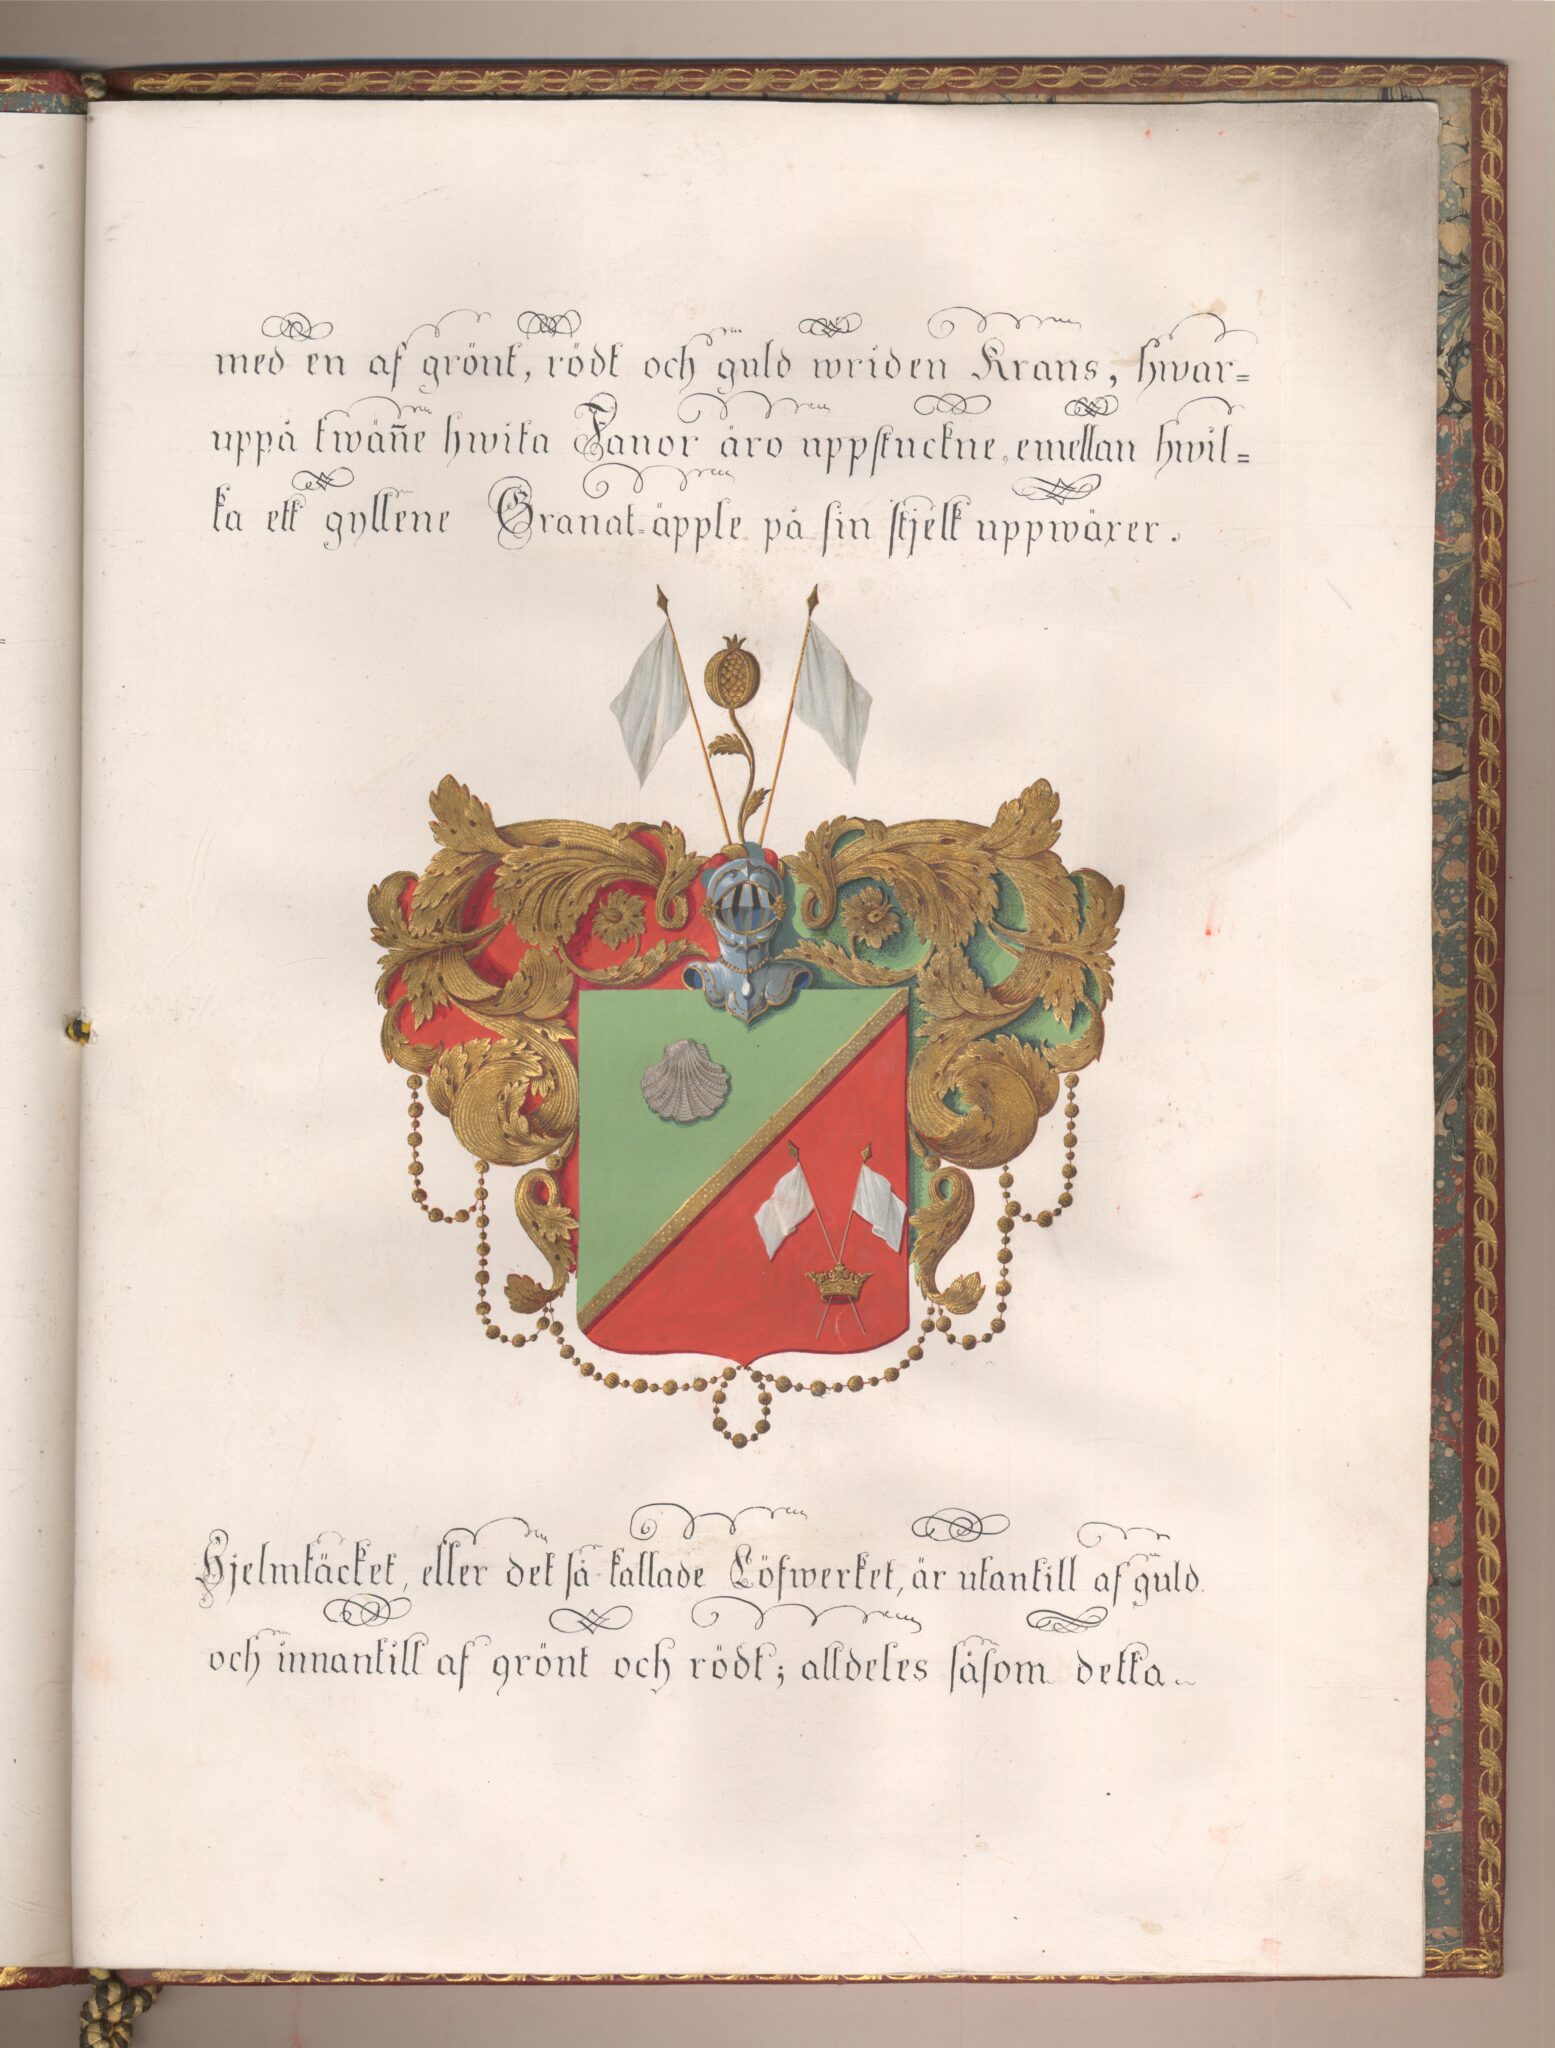 med en af grönt, rödt och guld wriden Krans, hwar=
uppå twäñe hwita Fanor äro uppstuckne, emellan hwil=
ka ett gyllene Granat-äpple på sin stjelk uppwäxer.
Hjelmtäcket, eller det så kallade Löfwerket, är utantill af guld
och innantill af grönt och rödt; alldeles såsom detta